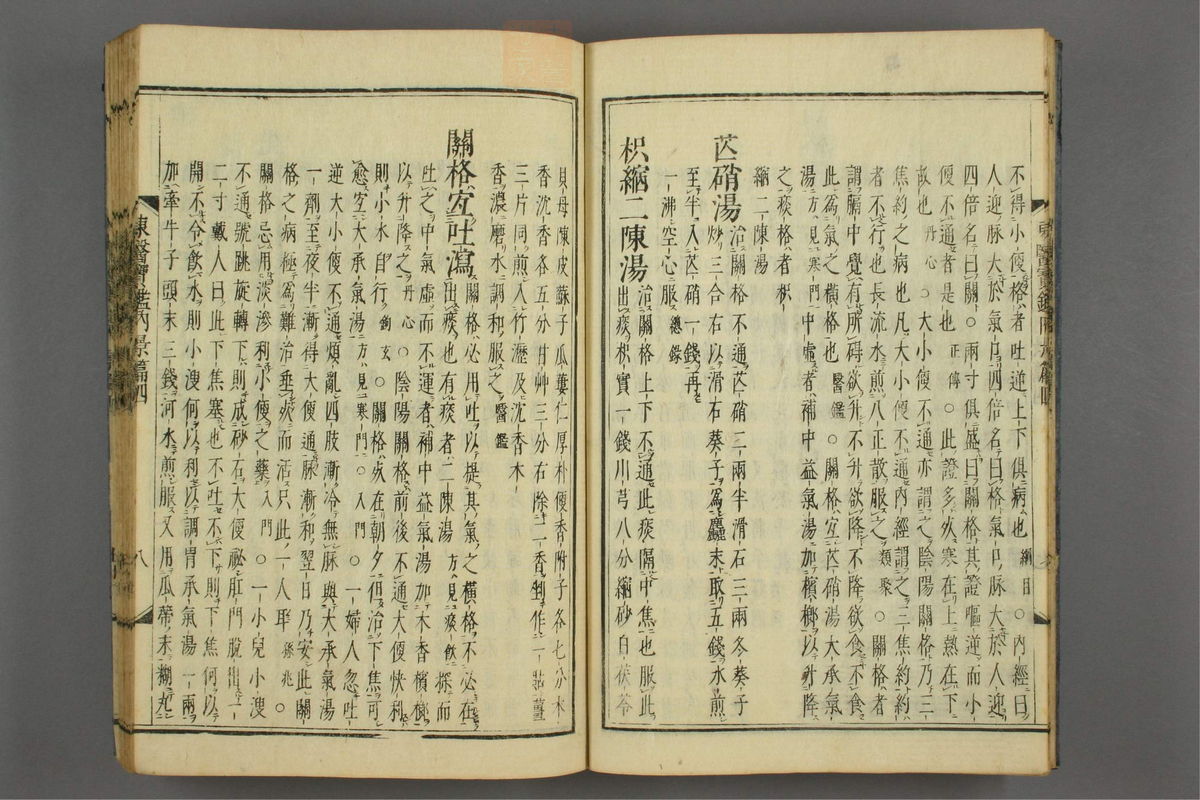 不得小便格者吐逆上下俱病也 綱目 ○內經曰
人迎脉大於氣口四倍名曰格氣口脉大於人迎
四倍名曰關○兩寸俱盛曰關格其證嘔逆而小
便不通者是也 正傳 ○此證多死寒在上熱在下
故也 丹心 ○大小便不通亦謂之陰陽關格乃三
焦約之病也凡大小便不通內經謂之三焦約約
者不行也長流水煎八正散服之 類聚 ○關格者
謂膈中覺有所碍欲升不升欲降不降欲食不食
此爲氣之橫格也 醫鑑 ○關格宜芒硝湯大承氣
湯方見寒門中虛者補中益氣湯加檳榔以升降
之痰格者枳
縮二陳湯
芒硝湯 治關格不通芒硝二兩半滑石三兩冬葵子
炒三合右以滑石葵子爲麤末取五錢水煎
至半入芒硝一錢再
一沸空心服 總錄
枳縮二陳湯 治關格上下不通此痰隔中焦也服此
出痰枳實一錢川芎八分縮砂白茯苓
貝母陳皮蘇子瓜蔞仁厚朴便香附子各七分木
香沈香各五分甘艸三分右除二香剉作一貼薑
三片同煎入竹瀝及沈香木
香濃磨水調和服之 醫鑑
關格宜吐瀉 關格必用吐以提其氣之橫格不必在
出痰也有痰者二陳湯方見痰飮探而
吐之中氣虛而不運者補中益氣湯加木香檳榔
以升降之 丹心 ○陰陽關格前後不通大便快利
則小水自行 鉤玄 ○關格死在朝夕但治下焦可
愈宜大承氣湯方見寒門 入門 ○一婦人忽吐
逆大小便不通煩亂四肢漸冷無脉與大承氣湯
一劑至夜半漸得大便通脉漸和翌日乃安此關
格之病極爲難治垂死而活只此一人耳 孫兆 ○
關格忌用淡滲利小便之藥 入門 ○一小兒小溲
不通號跳旋轉下則成砂石大便祕肛門脫出一
二寸戴人曰此下焦塞也不吐不下則下焦何以
開不令飮水則小溲何以利以調胃承氣湯一兩
加牽牛子頭末三錢河水煎服又用瓜蔕末糊丸
東醫寶鑑內景篇四 八